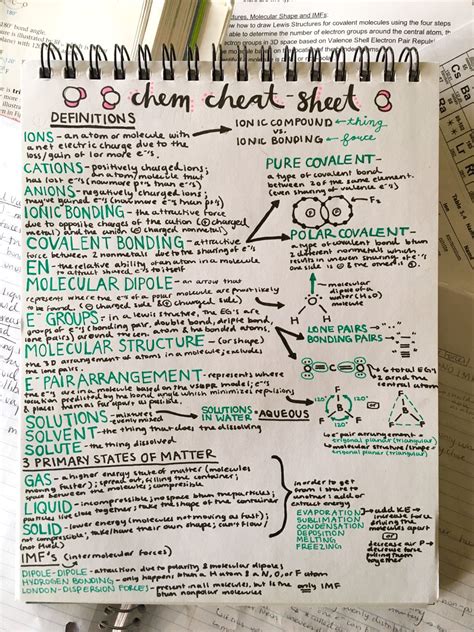 ctures, Molecular Shape and IMFs:
how to draw Lewis Structures for covalent molecules using the four steps
able to determine the number of electron groups around the central atom, th
ectron groups in 3D space based on Valence Shell Electron Pair Repuls
chem cheat-sheet
DEFINITIONS
IONS - an atom or molecule with
a net electric charge due to the
loss/gain of 1 or more e⁻'s
CATIONS - positively charged ions;
an atom/molecule that
has lost e⁻'s (now more p⁺'s than e⁻'s)
ANIONS - negatively charged ions;
they've gained e⁻'s (now more e⁻'s than p⁺'s)
IONIC BONDING - the attractive force
due to opposite charges of the cation (⊕ charged
metal) and the anion (⊖ charged nonmetal)
COVALENT BONDING - attractive
force between 2 nonmetals due to the sharing of e⁻'s
EN - the relative ability of an atom in a molecule
to attract shared e⁻'s to itself
MOLECULAR DIPOLE - an arrow that
represents where the e⁻'s of a polar molecule are most likely
to be found. (⊖ charged side & ⊕ charged side)
E⁻ GROUPS - in a lewis structure, the EG's are
groups of e⁻'s (bonding pair, double bond, triple bond,
lone pair) around the
MOLECULAR STRUCTURE - (or shape)
the 3D arrangement of atoms in a molecule; excludes
the lone pairs.
E⁻ PAIR ARRANGEMENT - represents where
e⁻'s are in a molecule based on the VSEPR model; e⁻'s
predicted by the bond angle which minimizes repulsions
& places them as far apart as possible.
SOLUTIONS - mixtures
evenly mixed
SOLVENT - the thing that does the dissolving
SOLUTE - the thing dissolved
IONIC COMPOUND → thing
vs.
IONIC BONDING → force
PURE COVALENT -
a type of covalent bond
between 2 of the same element.
(even sharing of valence e⁻s)
F F
POLAR COVALENT -
a type of covalent bond btwn
2 different nonmetals which
results in uneven sharing of e⁻'s
one side is ⊕ & the other is ⊖.
O
H H
molecular
dipole of a
water (H₂O)
molecule
LONE PAIRS
BONDING PAIRS
O = C = O
6 total EG's
2 around the
central atom
SOLUTIONS IN WATER = AQUEOUS
120° F 120°
120°
F F
or
F
B
F F
e⁻ pair arrangement =
trigonal planar (triangular)
molecular structure (shape) =
trigonal planar (triangular)
3 PRIMARY STATES OF MATTER
GAS - a higher energy state of matter (molecules
moving faster); spread out, filling the container;
space between the molecules
LIQUID - incompressible; no space btwn the particles;
particles slide together; take the shape of the container
SOLID - lower energy (molecules not moving as fast);
not compressible; take/have their own shape; can't flow/
(not fluid)
in order to get
from 1 state to
another: add or
extract energy
EVAPORATION
SUBLIMATION
CONDENSATION
DEPOSITION
MELTING
FREEZING
→ add KE →
increase force
driving the
molecules apart
or
decrease air →
decrease force
pulling them
together
IMF's (intermolecular forces)
DIPOLE-DIPOLE - attraction due to polarity & molecular dipoles
HYDROGEN BONDING - only happens btwn a H atom & a N, O, or F atom
LONDON-DISPERSION FORCES - present in all molecules, but is the only IMF
btwn nonpolar molecules